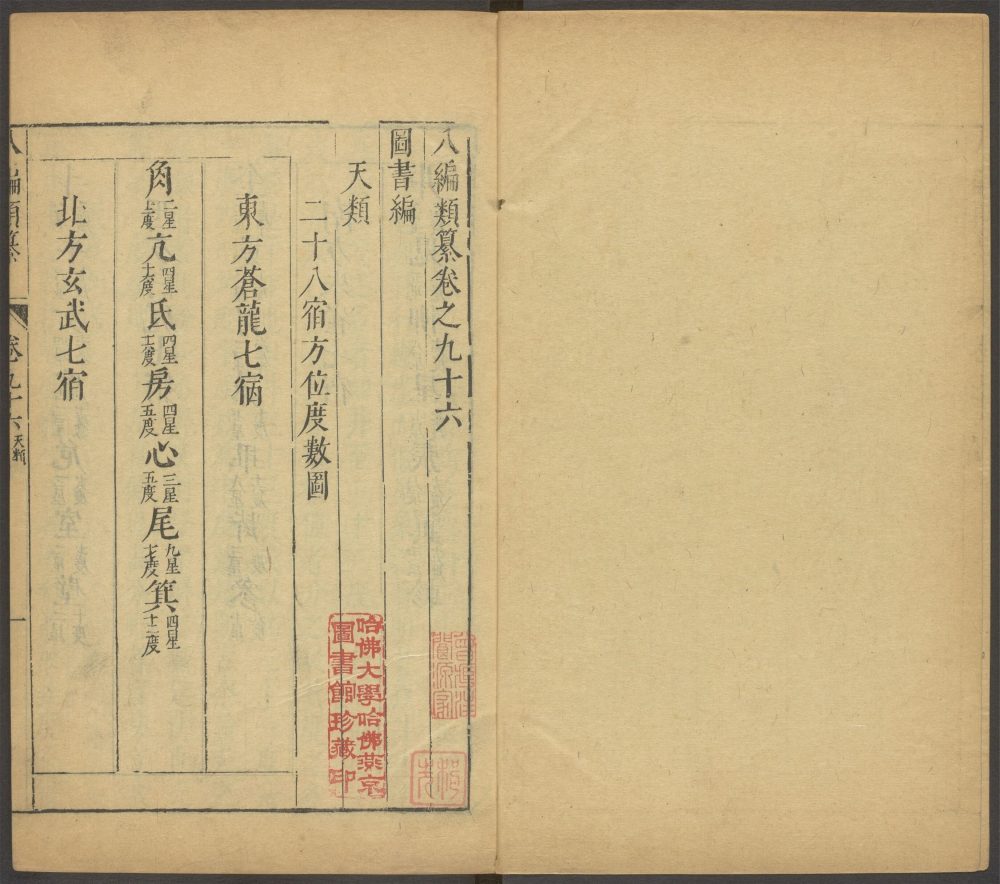 八編類纂卷之九十六
圖書編
天類
二十八宿方位度數圖
東方蒼龍七宿
角二星亢四星氐四星房四星五度心三星五度尾九星七度箕四星
北方玄武七宿
八編類纂
卷九十六
天類
一
哈佛大學哈佛燕京
圖書館珍藏印